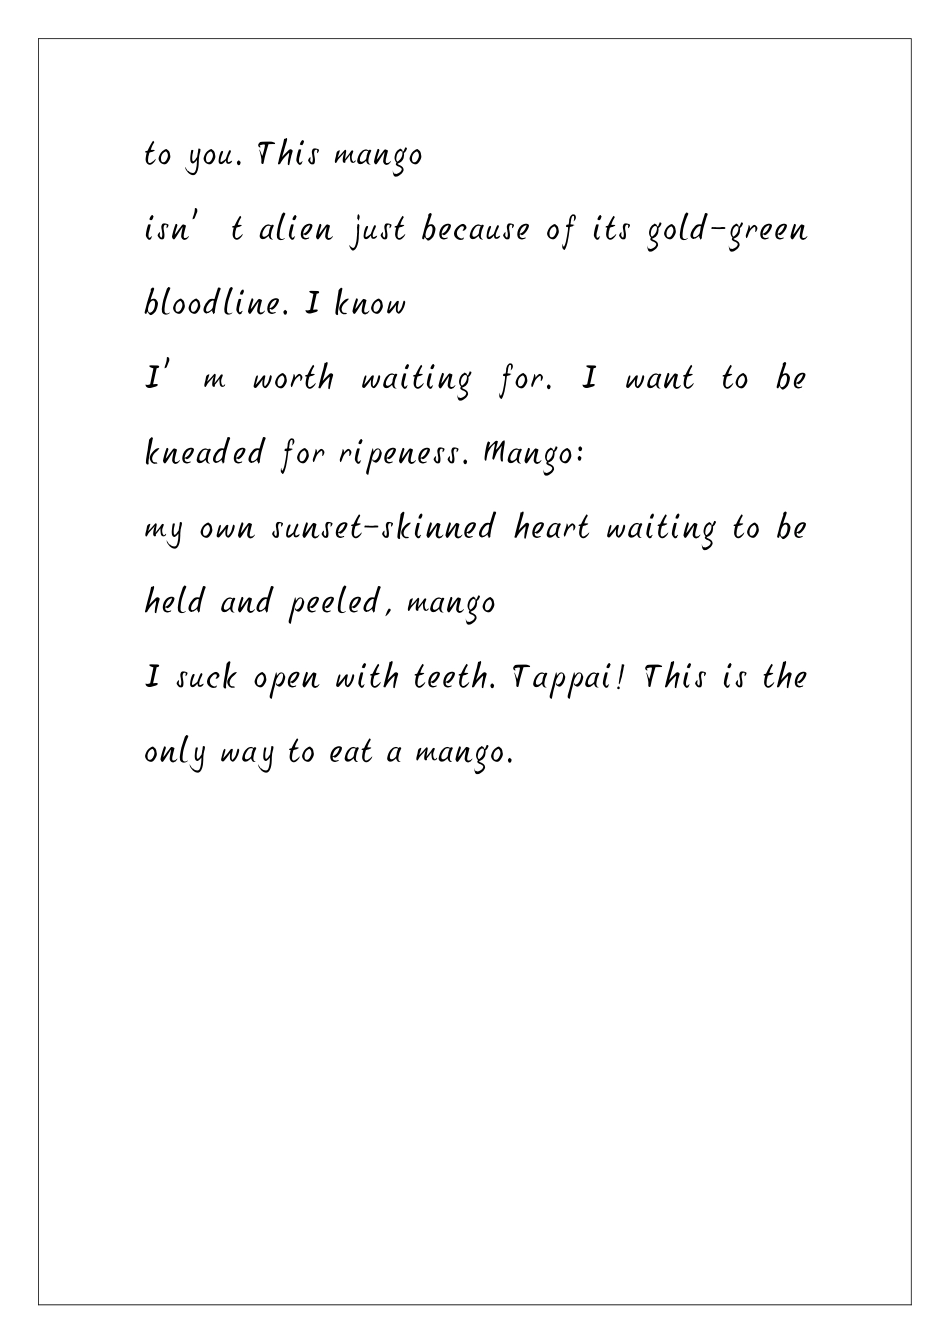 to you. This mango
isn' t alien just because of its gold-green
bloodline. I know
I' m worth waiting for. I want to be
kneaded for ripeness. Mango:
my own sunset-skinned heart waiting to be
held and peeled, mango
I suck open with teeth. Tappai! This is the
only way to eat a mango.